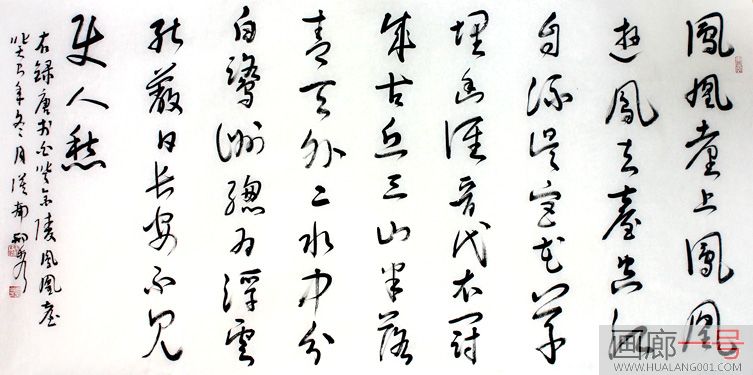 鳳凰臺上鳳凰
遊鳳去臺空江
自流吳宮花草
埋幽徑晉代衣冠
成古丘三山半落
青天外二水中分
白鷺洲總為浮雲
能蔽日長安不見
使人愁
右錄唐李白登金陵鳳凰臺
年冬月漢南
画廊一号
WWW.HUALANG001.COM